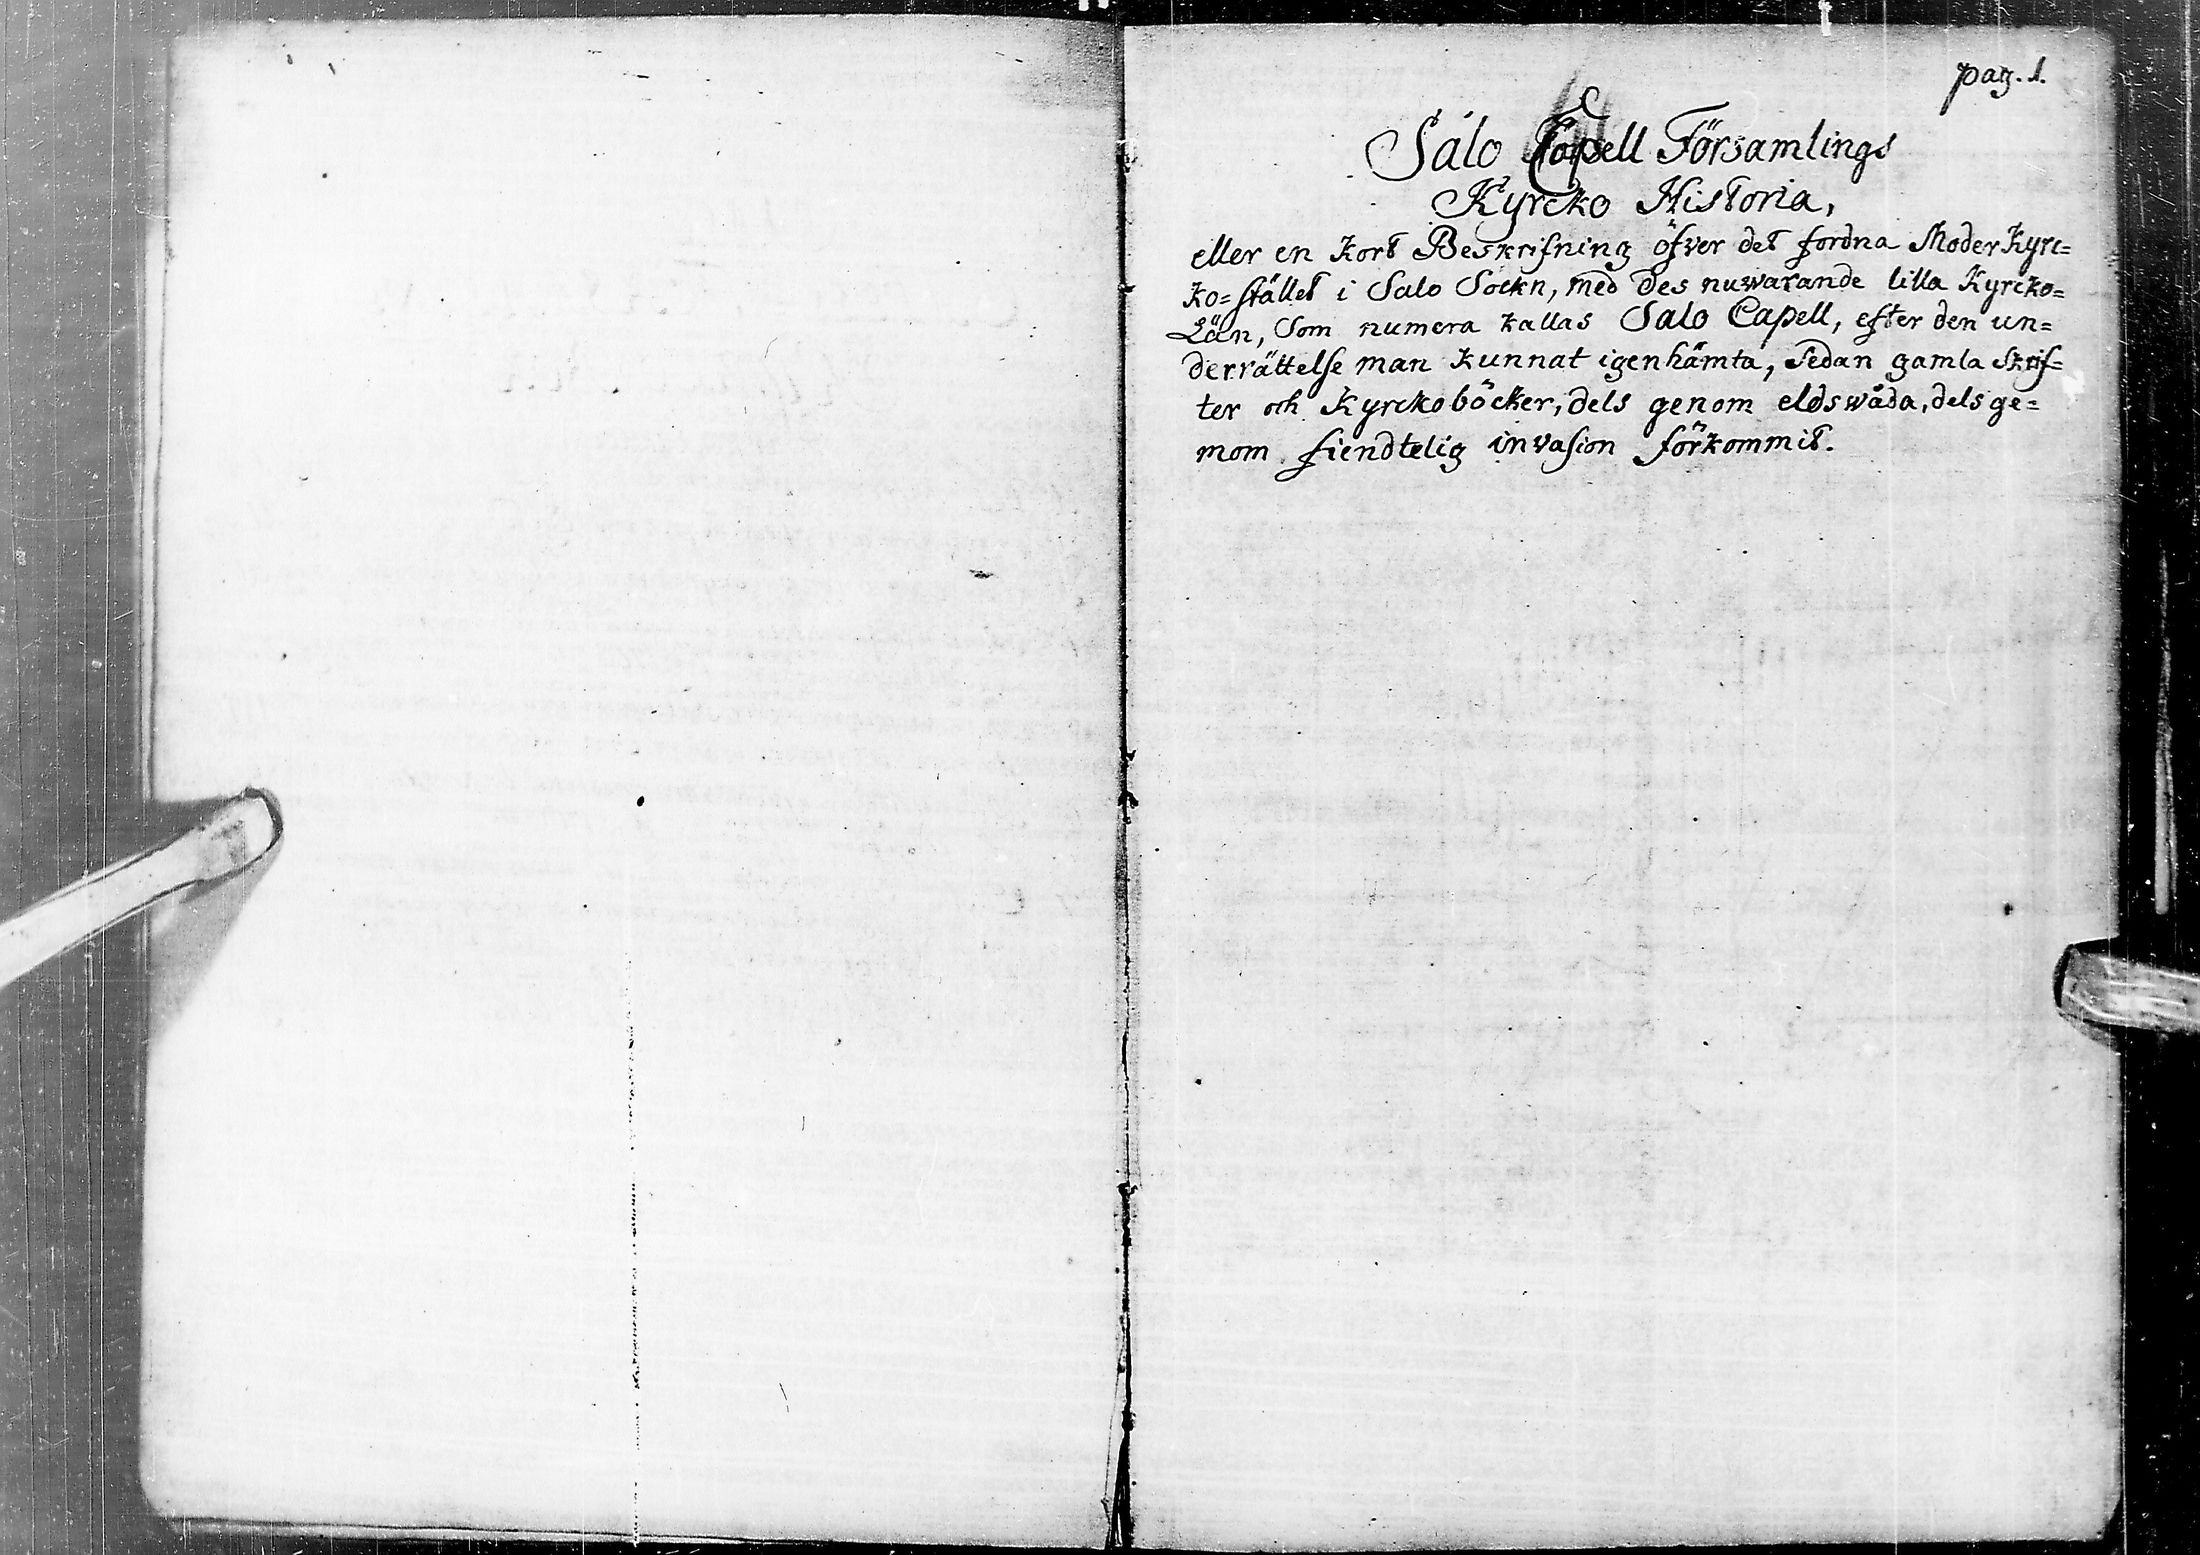 pag. 1.
Salo Capell Församlings
Kyrcko Historia,
eller en kort Beskrifning öfver det fordna Moder Kyrc=
ko=stället i Salo Sockn, med des nuwarande lilla Kyrcko=
Län, Som numera kallas Salo Capell, efter den un=
derrättelse man kunnat igenhämta, Sedan gamla Skrif=
ter och Kyrckoböcker, dels genom eldswåda, dels ge=
mom fiendtelig invasion förkommit.